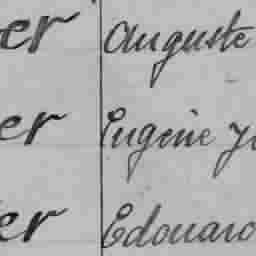 er Auguste
er Eugène
er Edouard